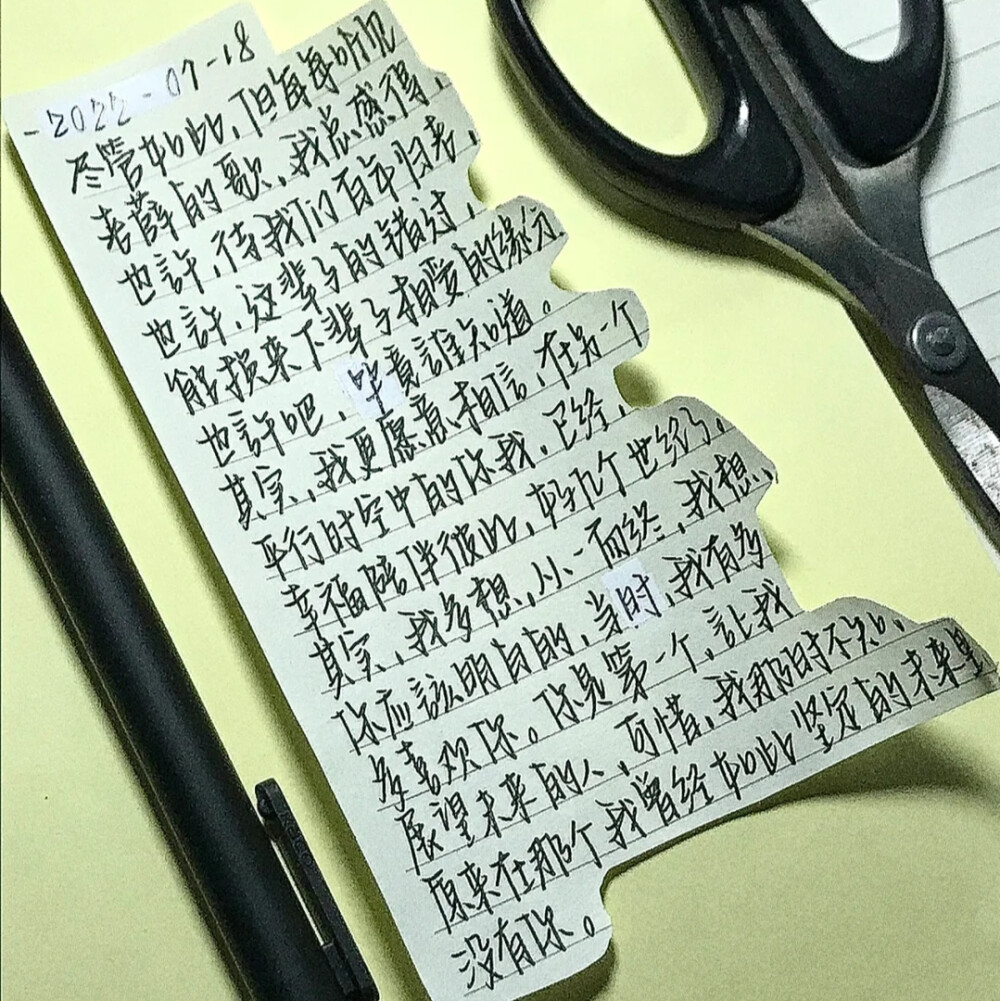 -2022-07-18
尽管如此，但每每听见
老薛的歌，我总感觉，
也許，待我们百年归来，
也許，这辈子的错过，
能换来下辈子相爱的缘分
也許吧，毕竟誰知道。
其实，我更愿意相信，在另一个
平行时空中的你我，已经，
幸福陪伴彼此，好几个世纪了。
其实，我多想，从一而终，我想，
你应該明白的，当时，我有多
多喜欢你。你是第一个，让我
展望未来的人，可惜，我那时不知，
原来在那个我曾经如此坚定的未来里
没有你。
kaco